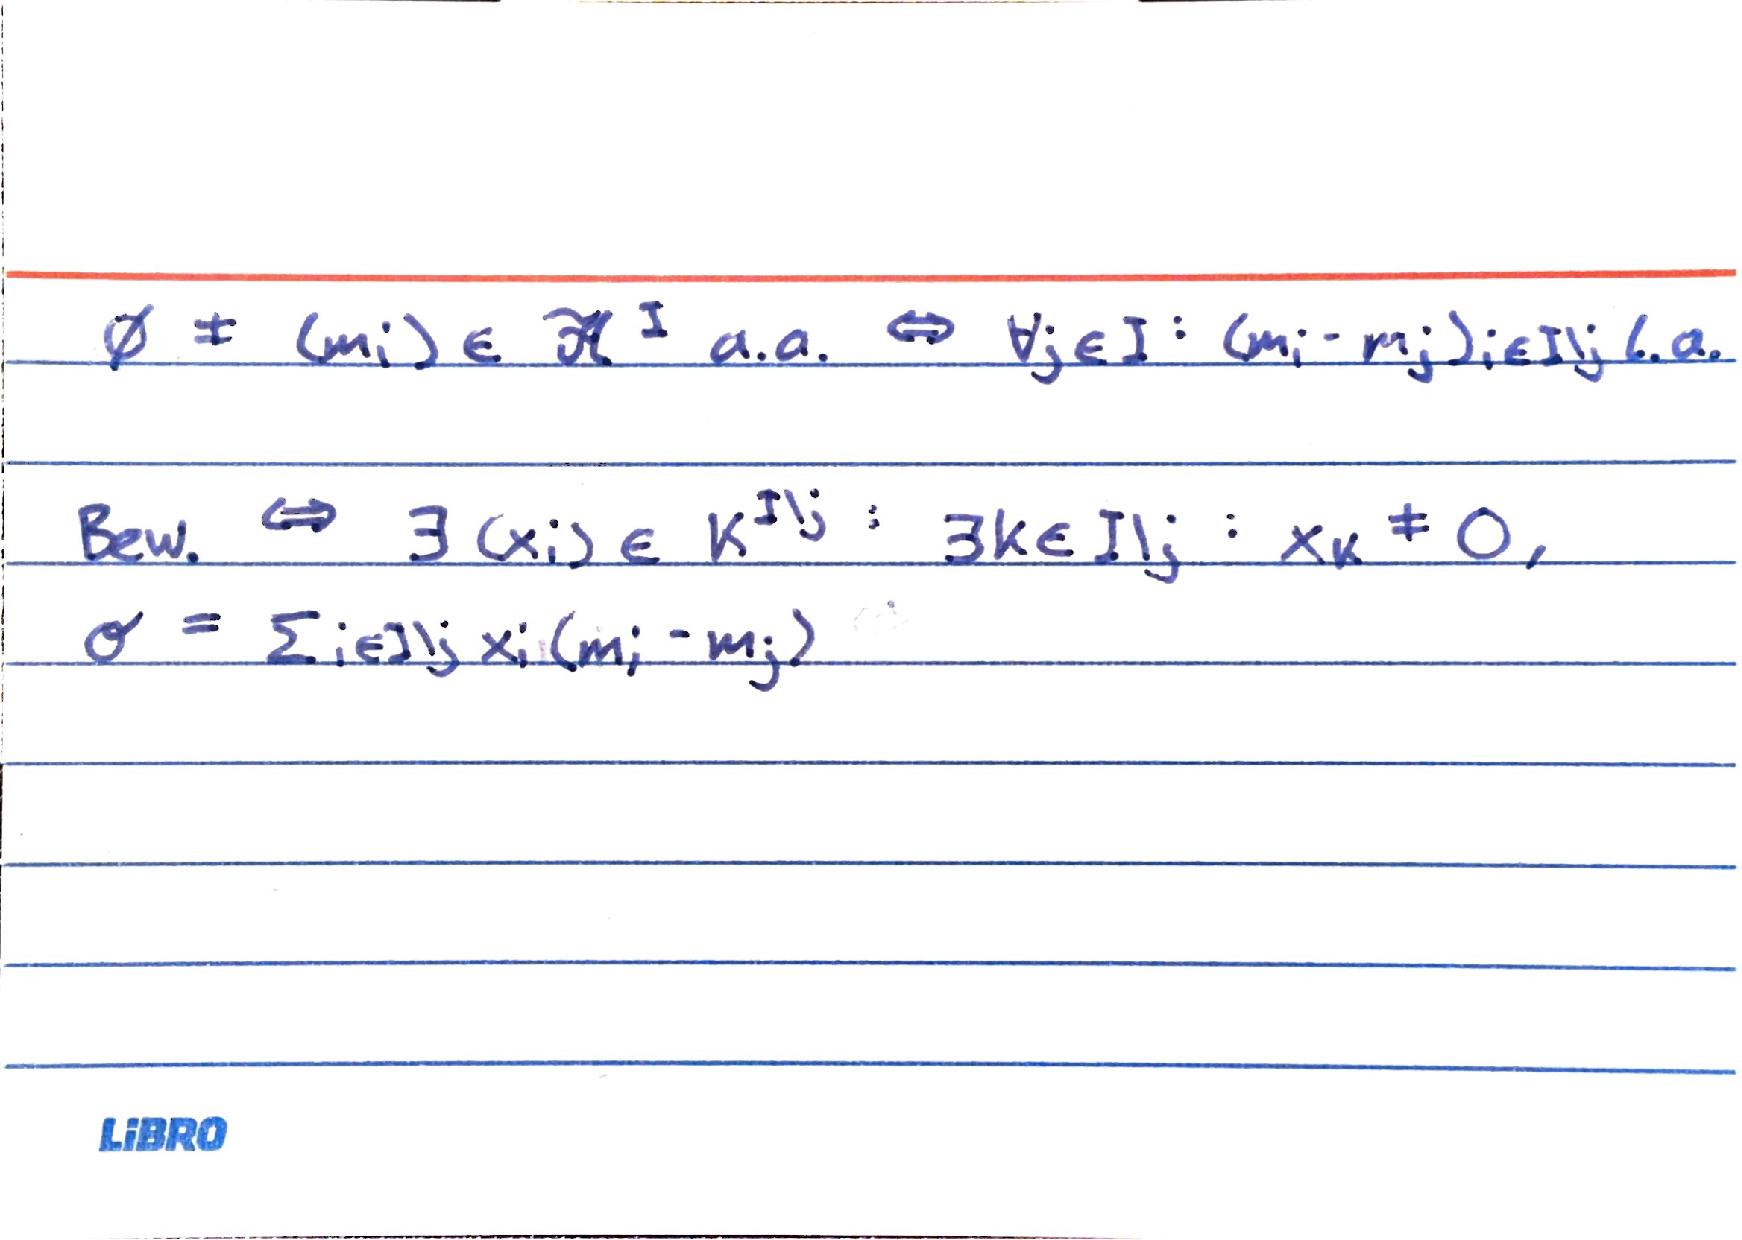 ∅ ≠ (mᵢ) ∈ ℋ^I a.a. ⇔ ∀j∈I : (mᵢ - mⱼ)ᵢ∈I\j l.a.
Bew. ⇔ ∃(xᵢ) ∈ K^I\j : ∃k∈I\j : xₖ ≠ 0,
σ = Σᵢ∈I\j xᵢ(mᵢ - mⱼ)
LiBRO